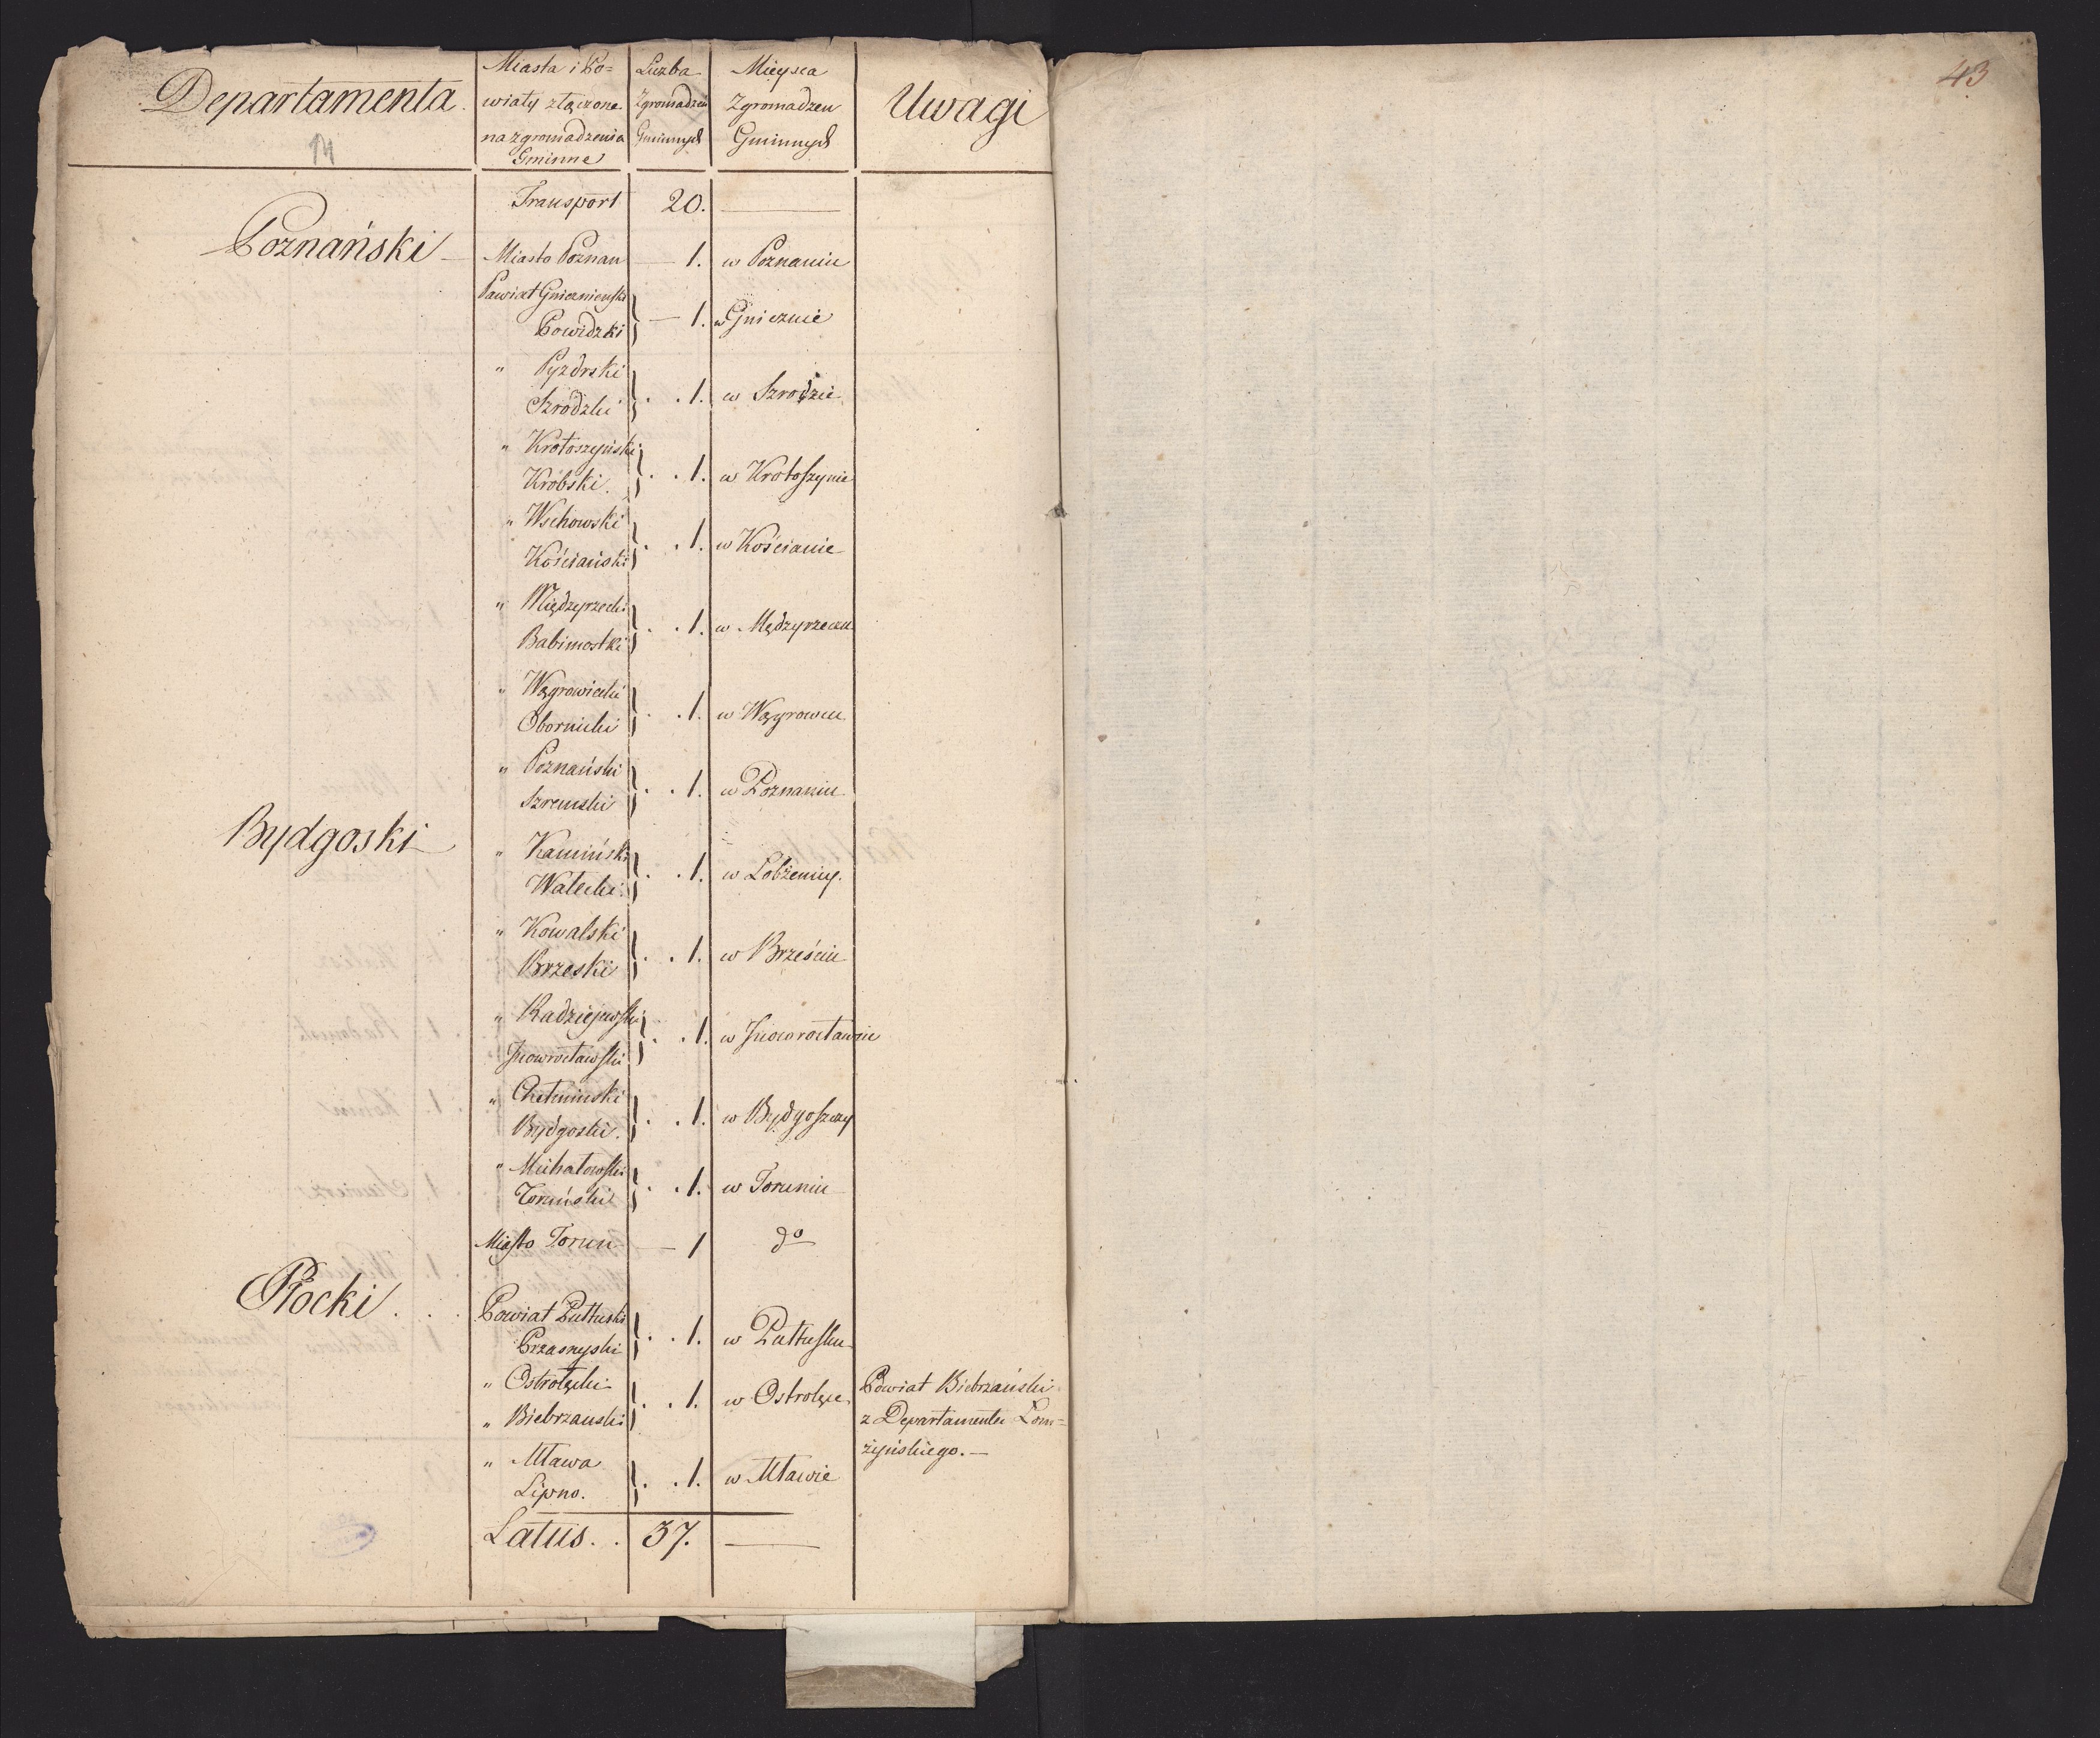 Departamenta.
Miasta i Po=
wiaty złączone
na zgromadzenia
Gminne
Liczba
Zgromadzeń
Gminnych
Mieysca
Zgromadzen
Gminnych
Uwagi
43
Transport 20.
Poznański — Miasto Poznan — 1. w Poznaniu
Powiat Gnieznienski
Powidzki — 1. w Gnieznie
" Pyzdrski
Szrodzki . . 1. w Szrodzie
" Krotoszyński
Kröbski. . . 1. w Krotoszynie
" Wschowski
Kościański . . 1. w Kościanie
" Międzyrzecki
Babimostki . . 1. w Mędzyrzeczu
" Wągrowiecki
Obornicki . . 1. w Wągrowcu
" Poznański
Szremski . . 1. w Poznaniu
Bydgoski " Kamiński
Wałecki . . 1. w Łobżenicy.
" Kowalski
Brzeski . . 1. w Brześciu
" Radziejewski
Inowrocławski . . 1. w Inowrocławiu
" Chełminski
Bydgoski. . . 1. w Bydgoszczy
" Michałowski
Toruński . . 1. w Toruniu
Miasto Torun — 1 do
Płocki . . . Powiat Pułtuski
Przasnyski . . 1. w Pułtusku
" Ostrołęcki
" Biebrzanski . . 1. w Ostrołęce
Powiat Biebrzański
z Departamentu Łom=
żyńskiego. —
" Mława
Lipno. . . 1. w Mławie
Latus. . 37.